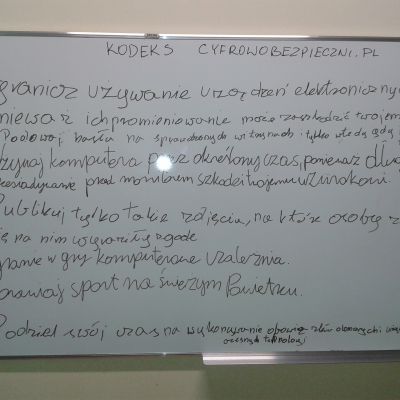 KODEKS CYFROWOBEZPIECZNI.PL
granicz używanie urządzeń elektronicznyc
niewaz ich promieniowanie może zaszkodzić twojem
Podawaj hasła na sprawdzonych witrynach i tylko wtedy gdy
żywaj komputera przez określony czas, ponieważ dłu
przesiadywanie przed monitorem szkodzi twojemu wzrokowi.
Publikuj tylko takie zdjęcia, na które osoby z
ię na nim wyraziły zgodę
granie w gry komputerowe uzależnia.
prawiaj sport na świeżym Powietrzu.
Podziel swój czas na wykonywanie obowią zków domowych i
czesnych technologi